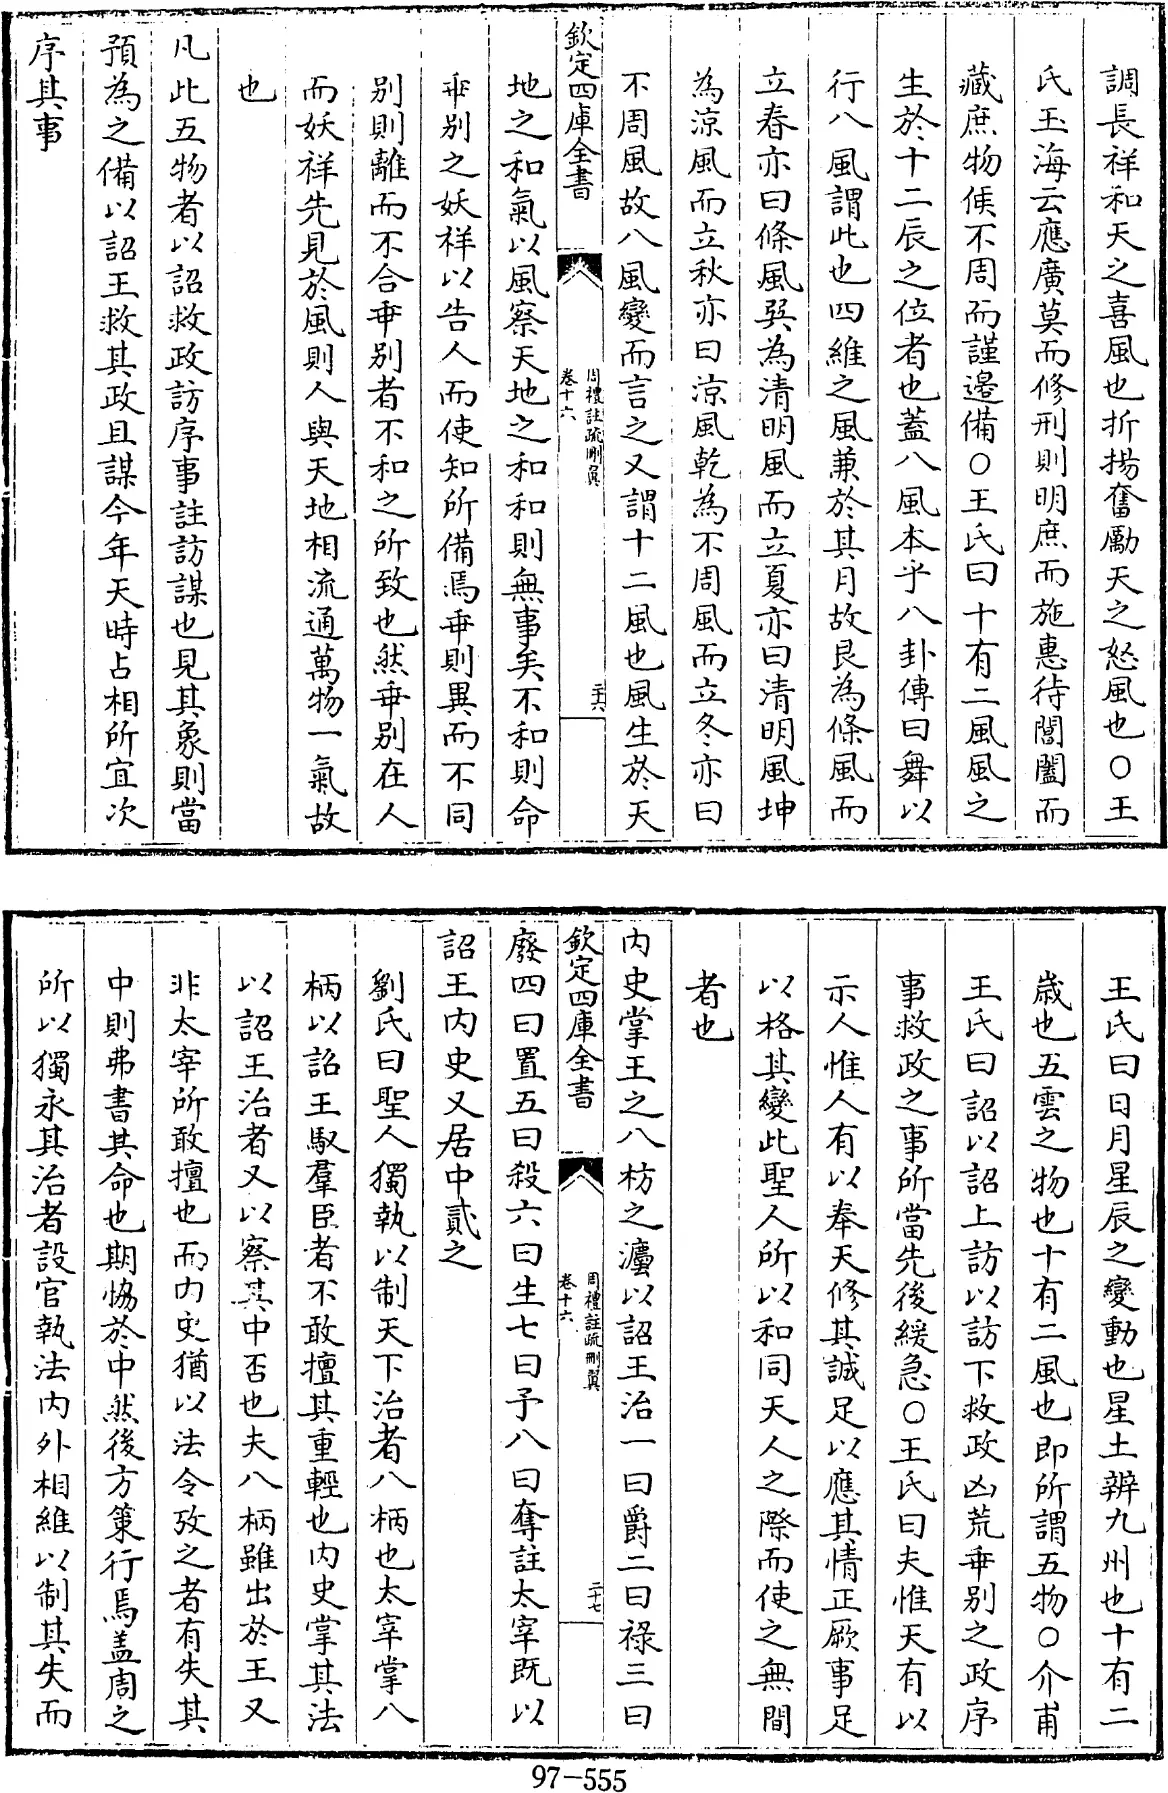 調長祥和天之喜風也折揚奮勵天之怒風也○王
氏玉海云應廣莫而修刑則明庶而施惠待閶闔而
藏庶物候不周而謹邊備○王氏曰十有二風風之
生於十二辰之位者也蓋八風本乎八卦傳曰舞以
行八風謂此也四維之風兼於其月故艮為條風而
立春亦曰條風巽為清明風而立夏亦曰清明風坤
為涼風而立秋亦曰涼風乾為不周風而立冬亦曰
不周風故八風變而言之又謂十二風也風生於天
欽定四庫全書
周禮註疏刪翼
卷十六
二十六
地之和氣以風察天地之和和則無事矣不和則命
乖别之妖祥以告人而使知所備焉乖則異而不同
别則離而不合乖别者不和之所致也然乖别在人
而妖祥先見於風則人與天地相流通萬物一氣故
也
凡此五物者以詔救政訪序事註訪謀也見其象則當
預為之備以詔王救其政且謀今年天時占相所宜次
序其事
王氏曰日月星辰之變動也星土辨九州也十有二
歲也五雲之物也十有二風也即所謂五物○介甫
王氏曰詔以詔上訪以訪下救政凶荒乖别之政序
事救政之事所當先後緩急○王氏曰夫惟天有以
示人惟人有以奉天修其誠足以應其情正厥事足
以格其變此聖人所以和同天人之際而使之無間
者也
内史掌王之八枋之灋以詔王治一曰爵二曰祿三曰
欽定四庫全書
周禮註疏刪翼
卷十六
二十七
廢四曰置五曰殺六曰生七曰予八曰奪註太宰既以
詔王内史又居中貳之
劉氏曰聖人獨執以制天下治者八柄也太宰掌八
柄以詔王馭羣臣者不敢擅其重輕也内史掌其法
以詔王治者又以察其中否也夫八柄雖出於王又
非太宰所敢擅也而内史猶以法令攷之者有失其
中則弗書其命也期恊於中然後方筞行焉盖周之
所以獨永其治者設官執法内外相維以制其失而
97-555